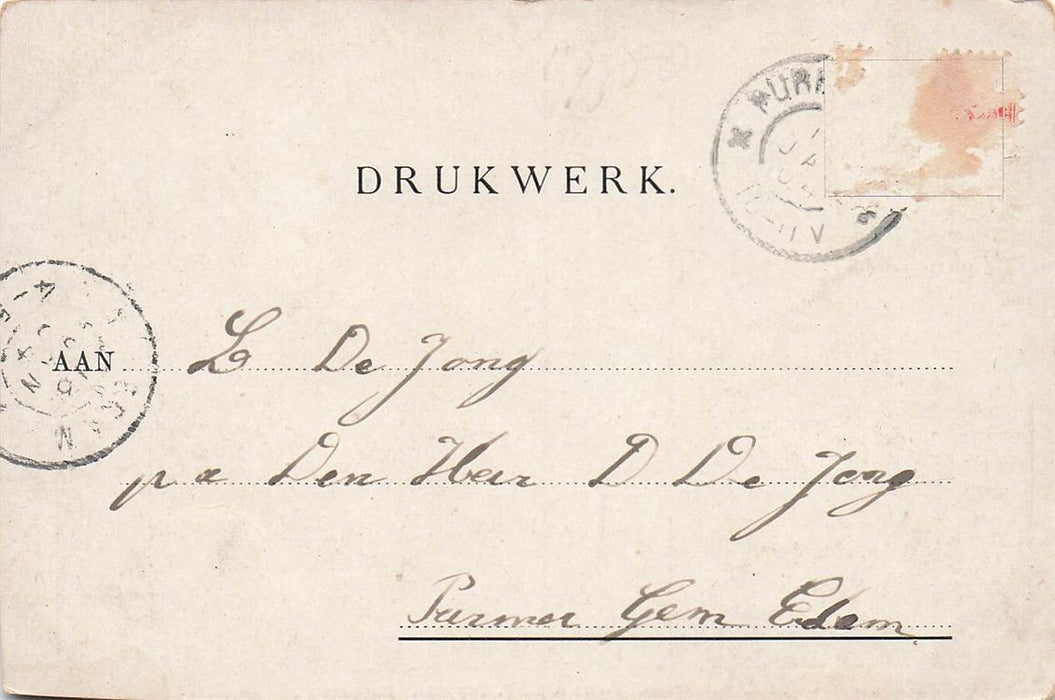 DRUKWERK.
AAN L De Jong
p a Den Heer D De Jong
Purmer Gem Edam